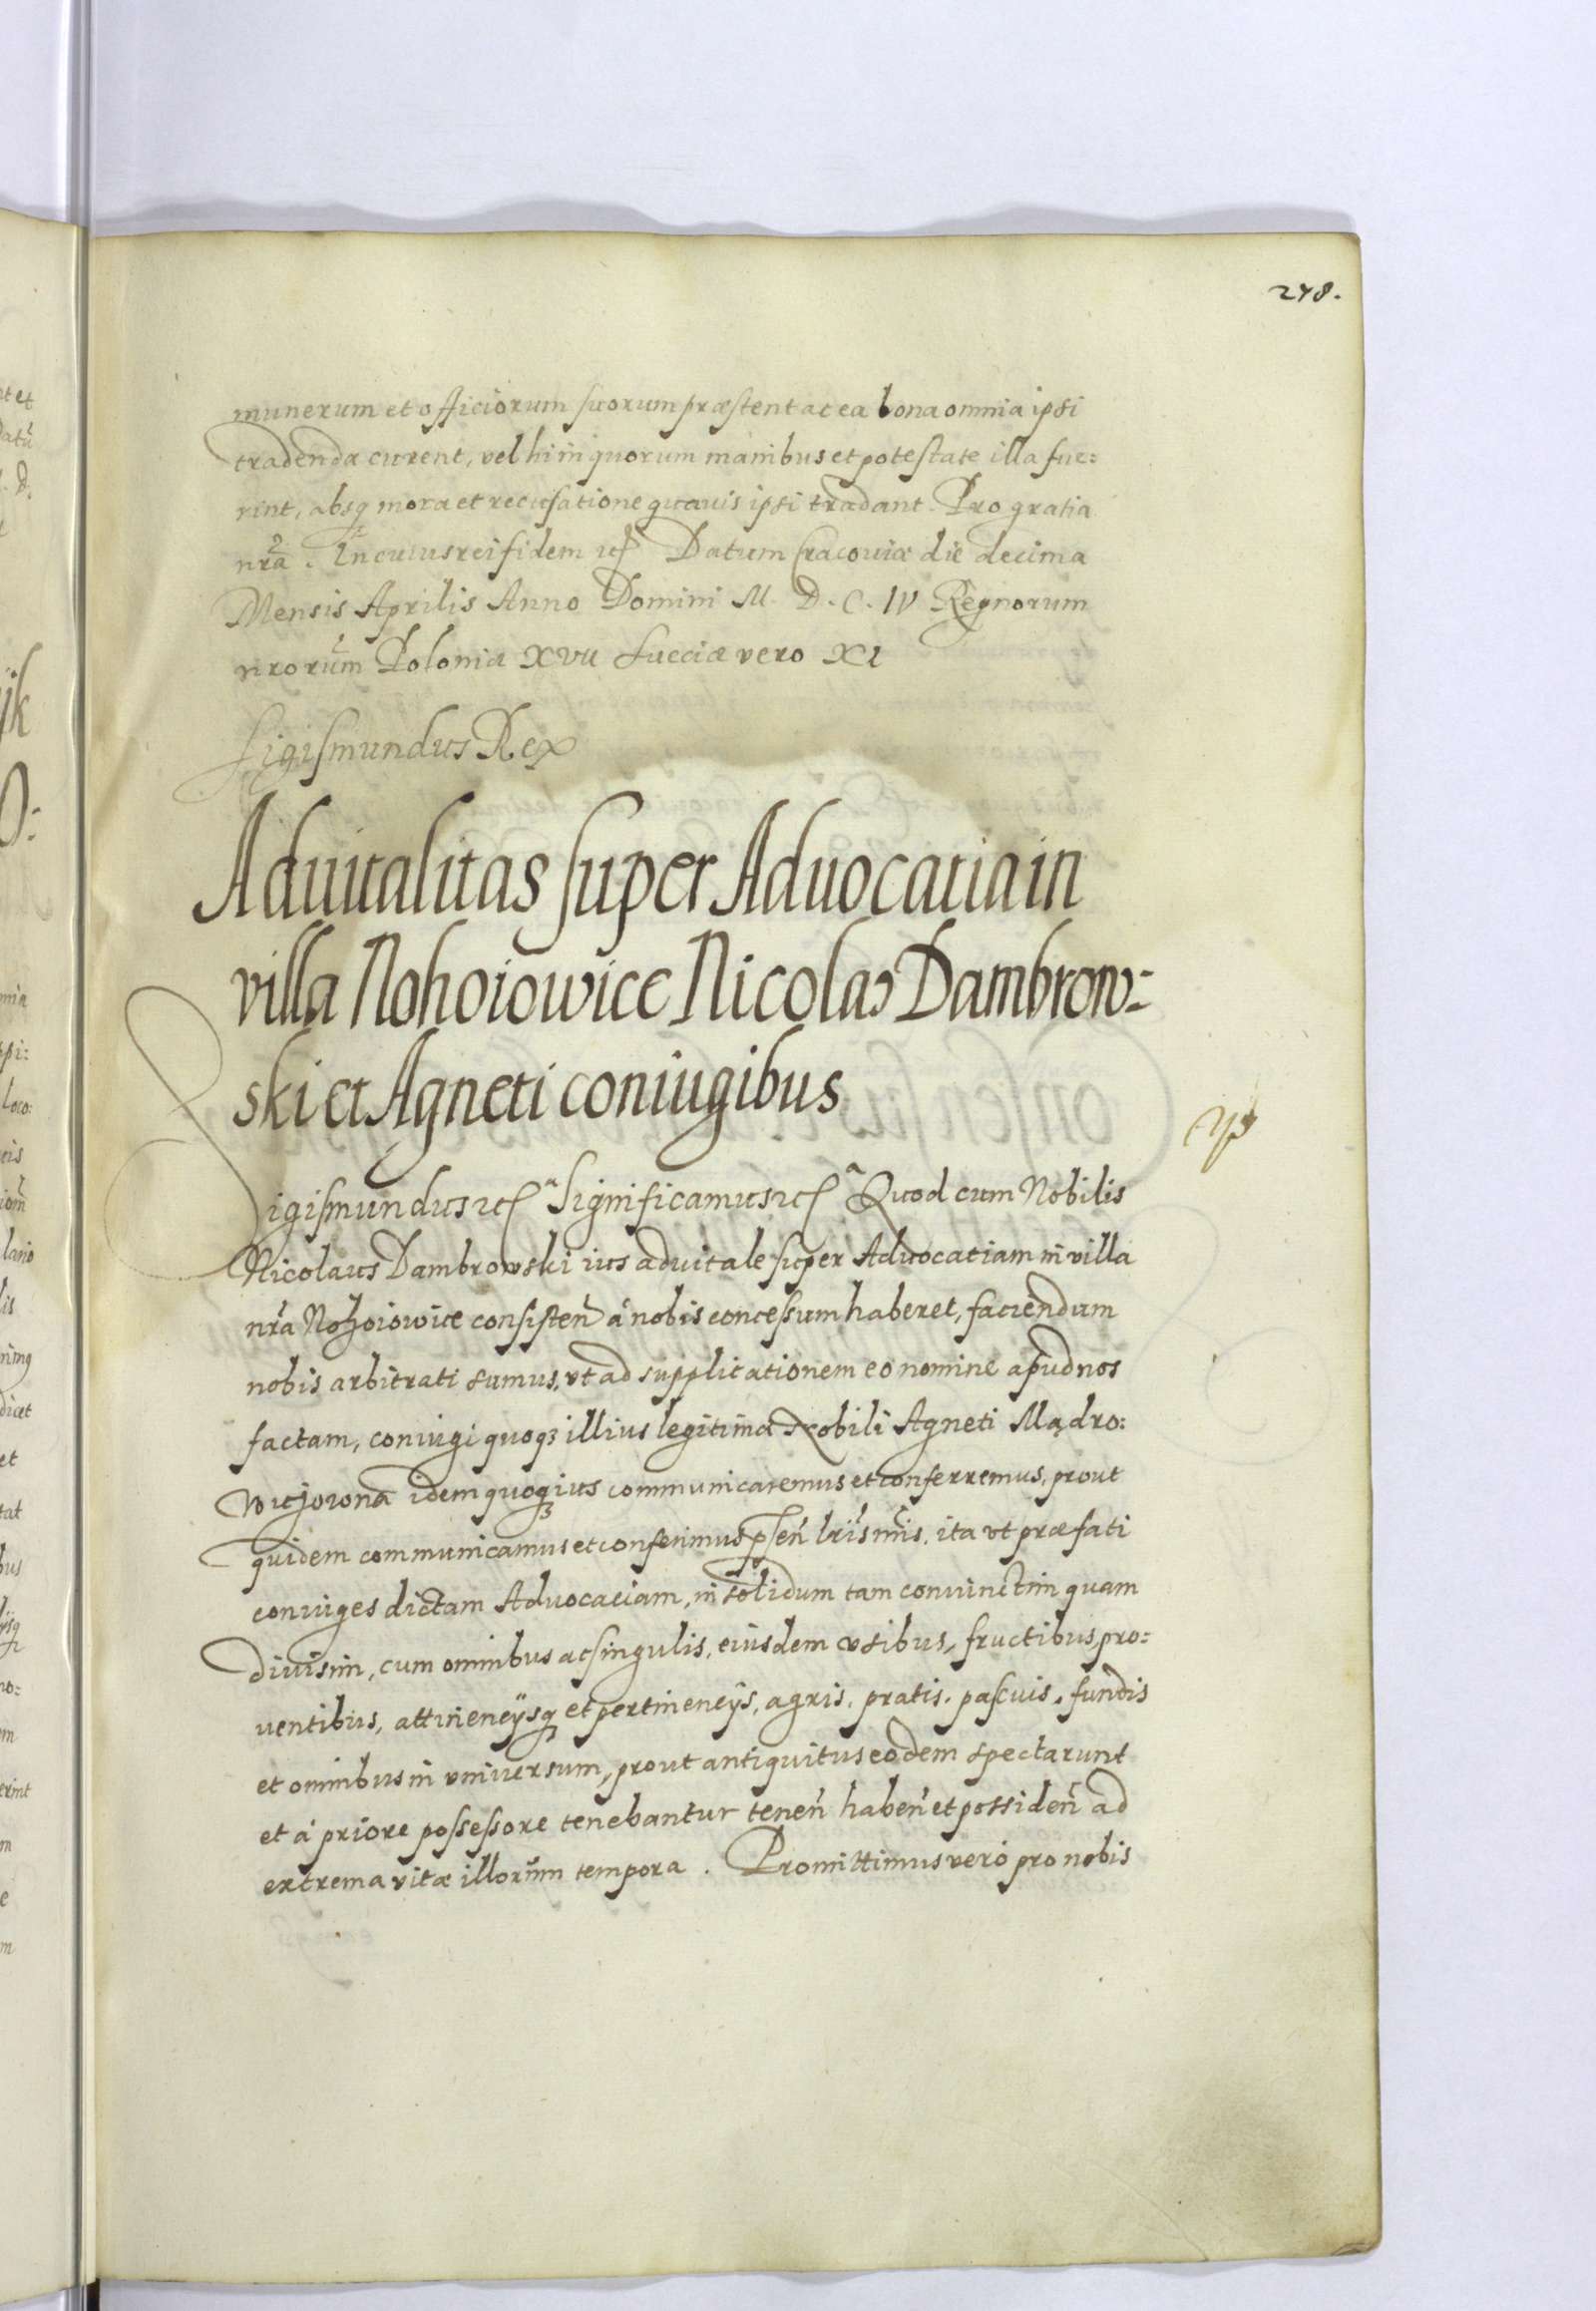 278.
munerum et officiorum suorum præstent ac ea bona omnia ipsi
tradenda curent, vel hi in quorum manibus et potestate illa fue:
rint, absq mora et recusatione quavis ipsi tradant. Pro gratia
nr̃a. In cuius rei fidem etc Datum Cracoviæ die decima
Mensis Aprilis Anno Domini M. D. C. IV Regnorum
nrorum̃ Poloniæ XVII Sueciæ vero XI
Sigismundus Rex
Aduitalitas super Aduocatia in
villa Nohoiowice Nicolao Dambrow:
ski et Agneti coniugibus
Sigismundus etc Significamus etc Quod cum Nobilis
Nicolaus Dambrowski ius aduitale super Aduocatiam in villa
nr̃a Nohoiowice consisteñ à nobis concessum haberet, faciendum
nobis arbitrati sumus, vt ad supplicationem eo nomine apud nos
factam, coniugi quoq3 illius legitimæ Nobili Agneti Mądro:
idem quoq3 ius communicaremus et conferremus, prout
quidem communicamus et conferimus pr̃señ lr̃is nr̃is, ita vt præfati
coniuges dictam Aduocatiam, in solidum tam coniunctim quam
diuisim, cum omnibus ac singulis, eiusdem vsibus, fructibus, pro:
uentibus, attineneÿsq et pertineneÿs, agris, pratis, pascuis, fundis
et omnibus in vniuersum, prout antiquitus eodem spectarunt
et à priore possessore tenebantur teneñ habeñ et possideñ ad
extrema vitæ illorum̃ tempora. Promittimus verò pro nobis